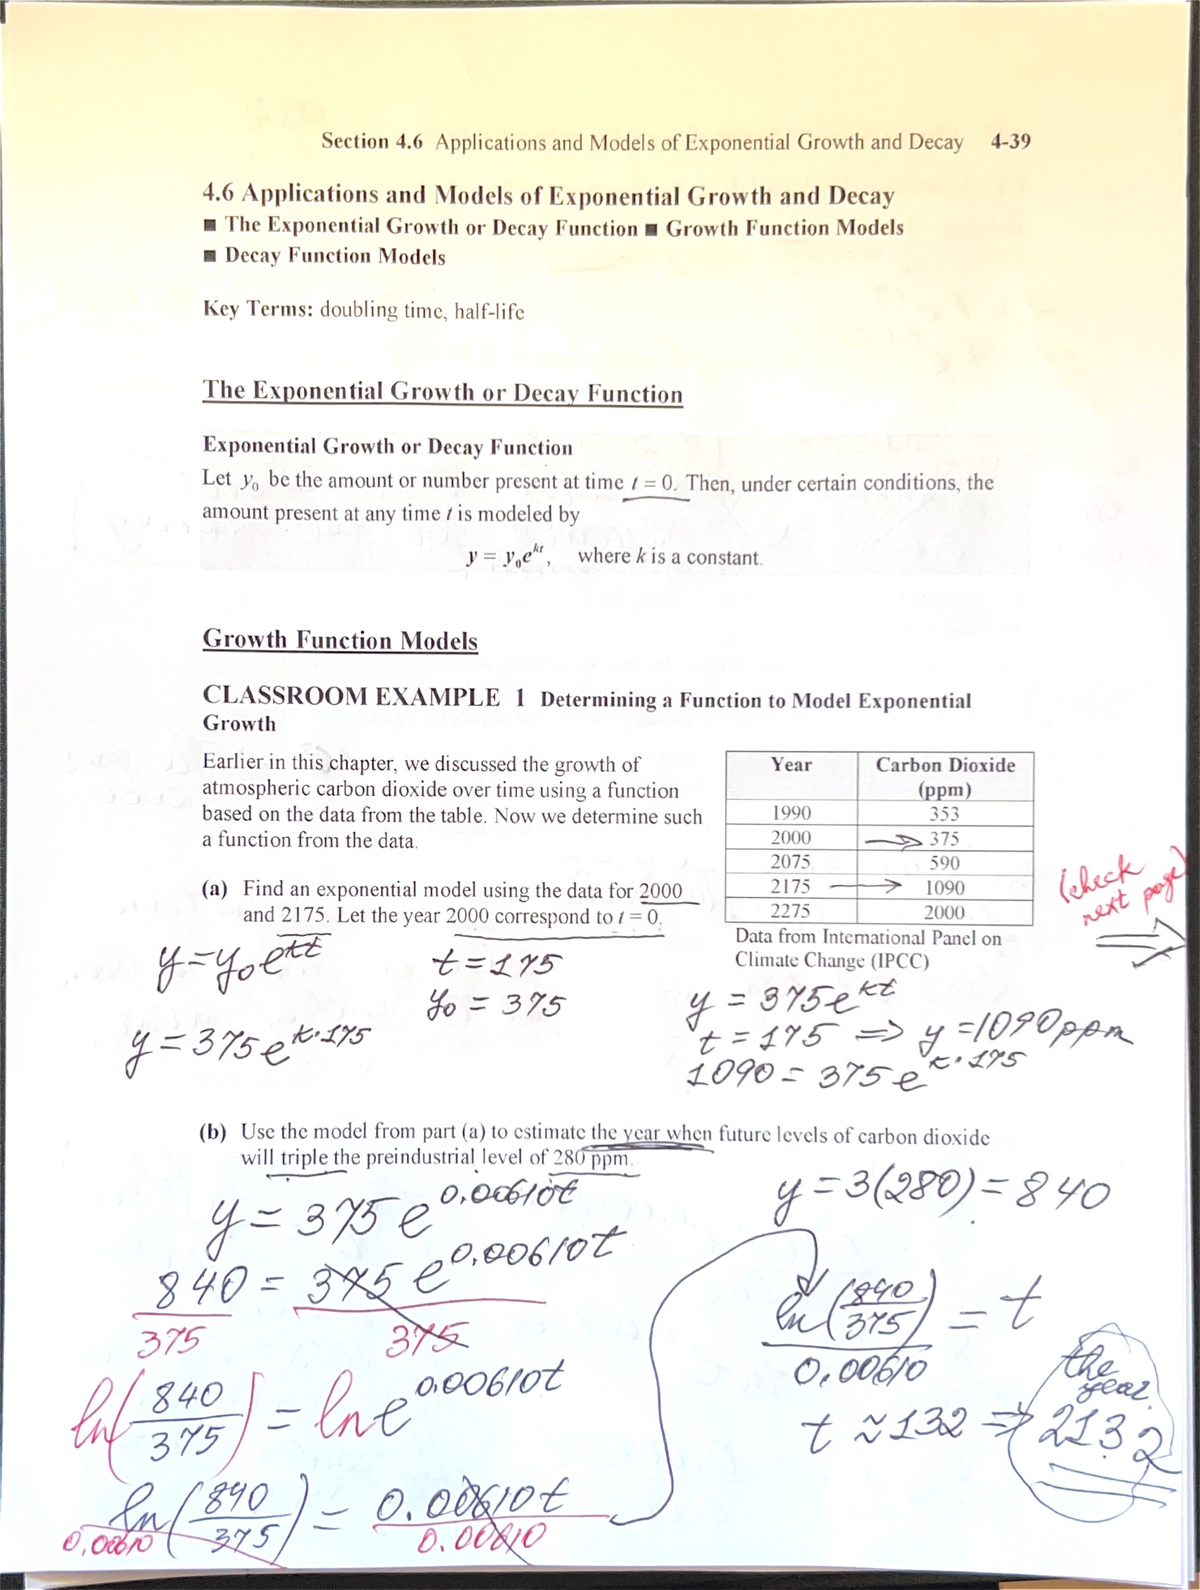 Section 4.6 Applications and Models of Exponential Growth and Decay 4-39
4.6 Applications and Models of Exponential Growth and Decay
■ The Exponential Growth or Decay Function ■ Growth Function Models
■ Decay Function Models
Key Terms: doubling time, half-life
The Exponential Growth or Decay Function
Exponential Growth or Decay Function
Let y₀ be the amount or number present at time t = 0. Then, under certain conditions, the
amount present at any time t is modeled by
y = y₀e^{kt}, where k is a constant.
Growth Function Models
CLASSROOM EXAMPLE 1 Determining a Function to Model Exponential
Growth
Earlier in this chapter, we discussed the growth of
atmospheric carbon dioxide over time using a function
based on the data from the table. Now we determine such
a function from the data.
(a) Find an exponential model using the data for 2000
and 2175. Let the year 2000 correspond to t = 0.
Year Carbon Dioxide
(ppm)
1990 353
2000 → 375
2075 590
2175 → 1090
2275 2000
Data from International Panel on
Climate Change (IPCC)
(check
next page)
⇒
y = y₀e^{kt}
t = 175
y₀ = 375
y = 375e^{k·175}
y = 375e^{kt}
t = 175 ⇒ y = 1090ppm
1090 = 375e^{k·175}
(b) Use the model from part (a) to estimate the year when future levels of carbon dioxide
will triple the preindustrial level of 280 ppm.
y = 375e^{0.00610t}
840 = 375e^{0.00610t}
375 375
ln(840/375) = ln e^{0.00610t}
ln(840/375) = 0.00610t
0.00610 0.00610
y = 3(280) = 840
ln(840/375) = t
0.00610
t ≈ 132 ⇒ 2132
the
year